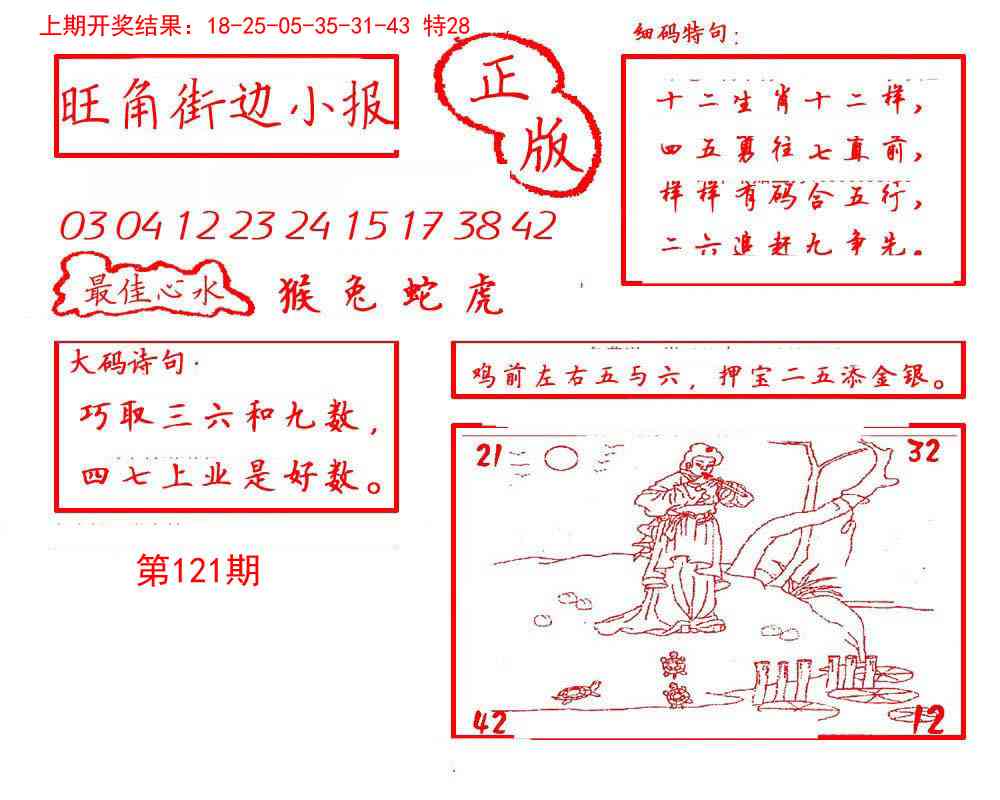 上期开奖结果：18-25-05-35-31-43 特28
旺角街边小报
正版
细码特句：
十二生肖十二样，
四五勇往七直前，
样样有码合五行，
二六追赶九争先。
03 04 12 23 24 15 17 38 42
最佳心水
猴兔蛇虎
大码诗句·
巧取三六和九数，
四七上业是好数。
鸡前左右五与六，押宝二五添金银。
第121期
21
32
42
12